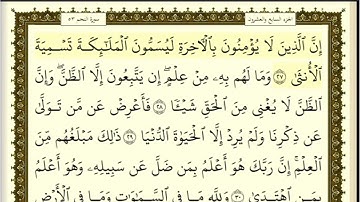 الجزء السابع والعشرون سورة النجم ٥٣
إِنَّ ٱلَّذِينَ لَا يُؤْمِنُونَ بِٱلْـَٔاخِرَةِ لَيُسَمُّونَ ٱلْمَلَـٰٓئِكَةَ تَسْمِيَةَ
ٱلْأُنثَىٰ ٢٧ وَمَا لَهُم بِهِۦ مِنْ عِلْمٍ ۖ إِن يَتَّبِعُونَ إِلَّا ٱلظَّنَّ ۖ وَإِنَّ
ٱلظَّنَّ لَا يُغْنِى مِنَ ٱلْحَقِّ شَيْـًٔا ٢٨ فَأَعْرِضْ عَن مَّن تَوَلَّىٰ
عَن ذِكْرِنَا وَلَمْ يُرِدْ إِلَّا ٱلْحَيَوٰةَ ٱلدُّنْيَا ٢٩ ذَٰلِكَ مَبْلَغُهُم مِّنَ
ٱلْعِلْمِ ۚ إِنَّ رَبَّكَ هُوَ أَعْلَمُ بِمَن ضَلَّ عَن سَبِيلِهِۦ وَهُوَ أَعْلَمُ
بِمَنِ ٱهْتَدَىٰ ٣٠ وَلِلَّهِ مَا فِى ٱلسَّمَـٰوَٰتِ وَمَا فِى ٱلْأَرْضِ